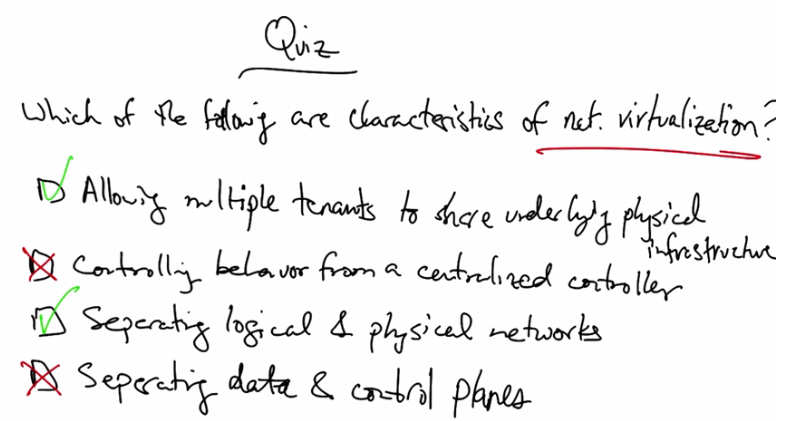 Quiz
Which of the following are characteristics of net. virtualization?
Allowing multiple tenants to share underlying physical
infrastructure
Controlling behavior from a centralized controller
Seperating logical & physical networks
Seperating data & control planes